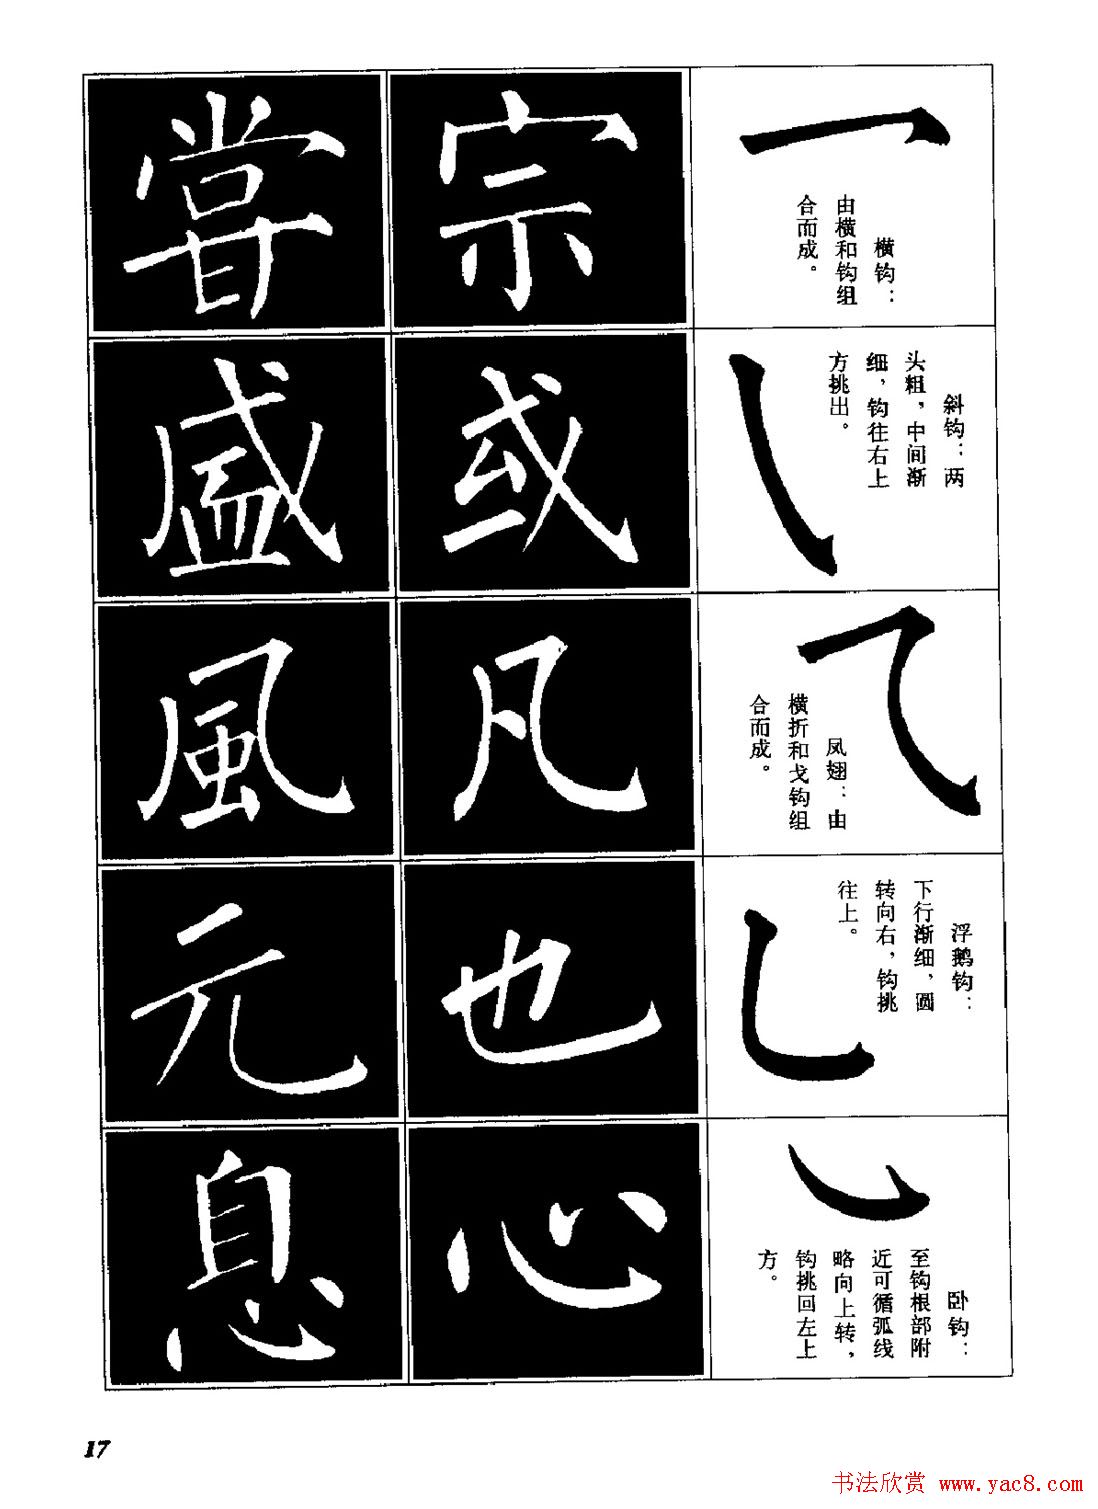 横钩：
由横和钩组
合而成。
宗
甞
斜钩：两
头粗，中间渐
细，钩往右上
方挑出。
或
盛
凤翅：由
横折和戈钩组
合而成。
凡
風
浮鹅钩：
下行渐细，圆
转向右，钩挑
往上。
也
元
卧钩：
至钩根部附
近可循弧线
略向上转，
钩挑回左上
方。
心
息
17
书法欣赏 www.yac8.com